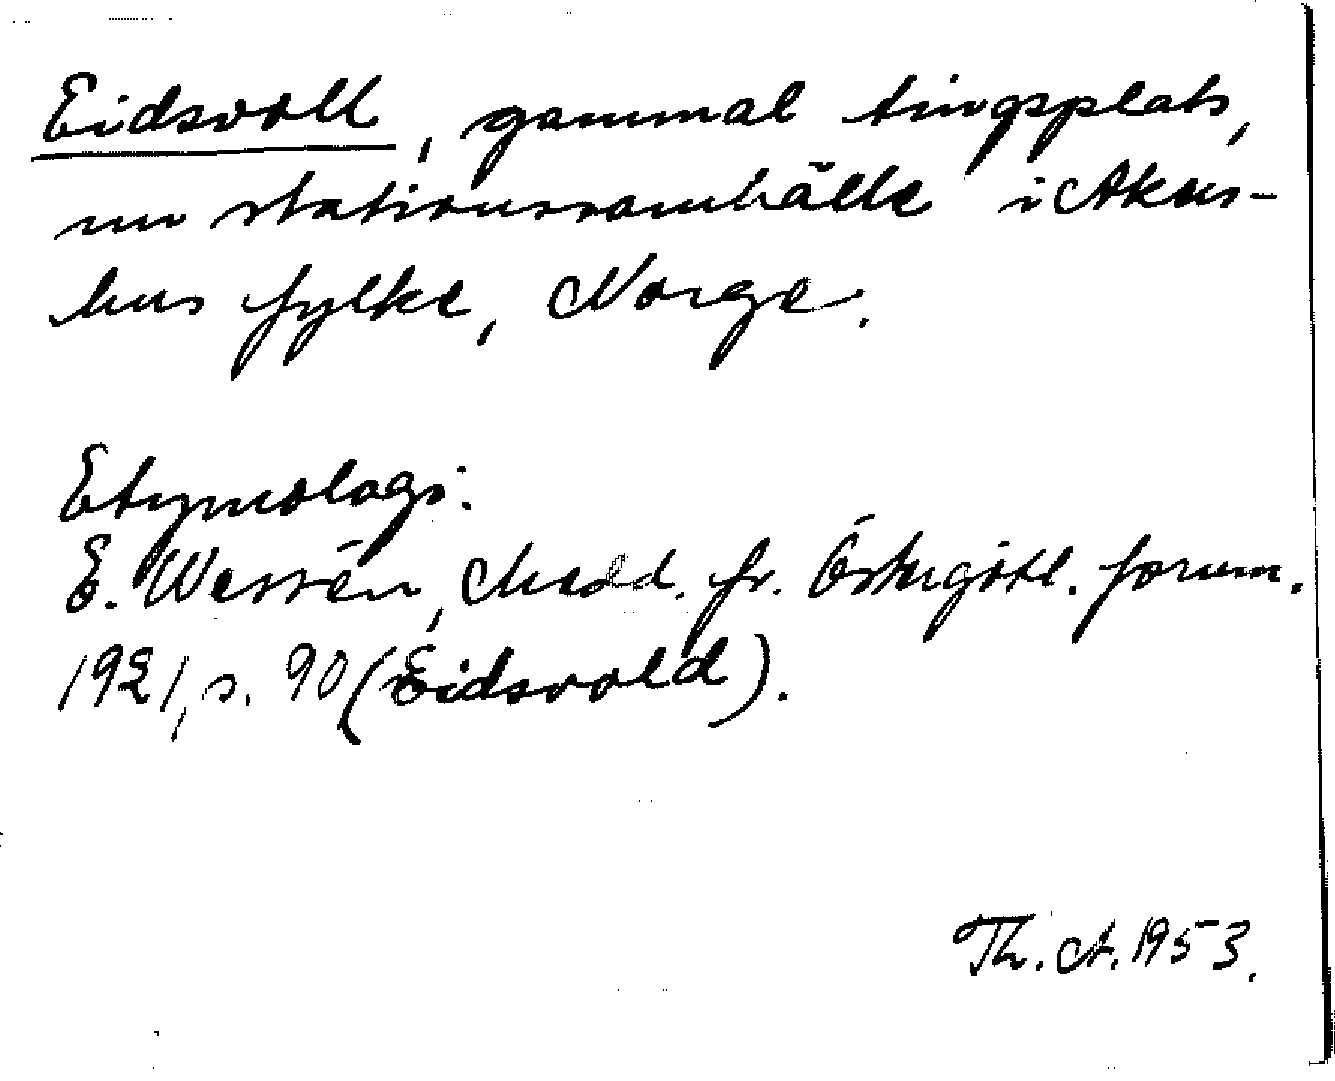 Eidsvoll, gammal tingsplats,
nu stationssamhälle i Akers-
hus fylke, Norge.
Etymologi:
E. Wessén, Medd. fr. Östergötl. fornm.
1921, s. 90 (Eidsvold).
Th. A. 1953.